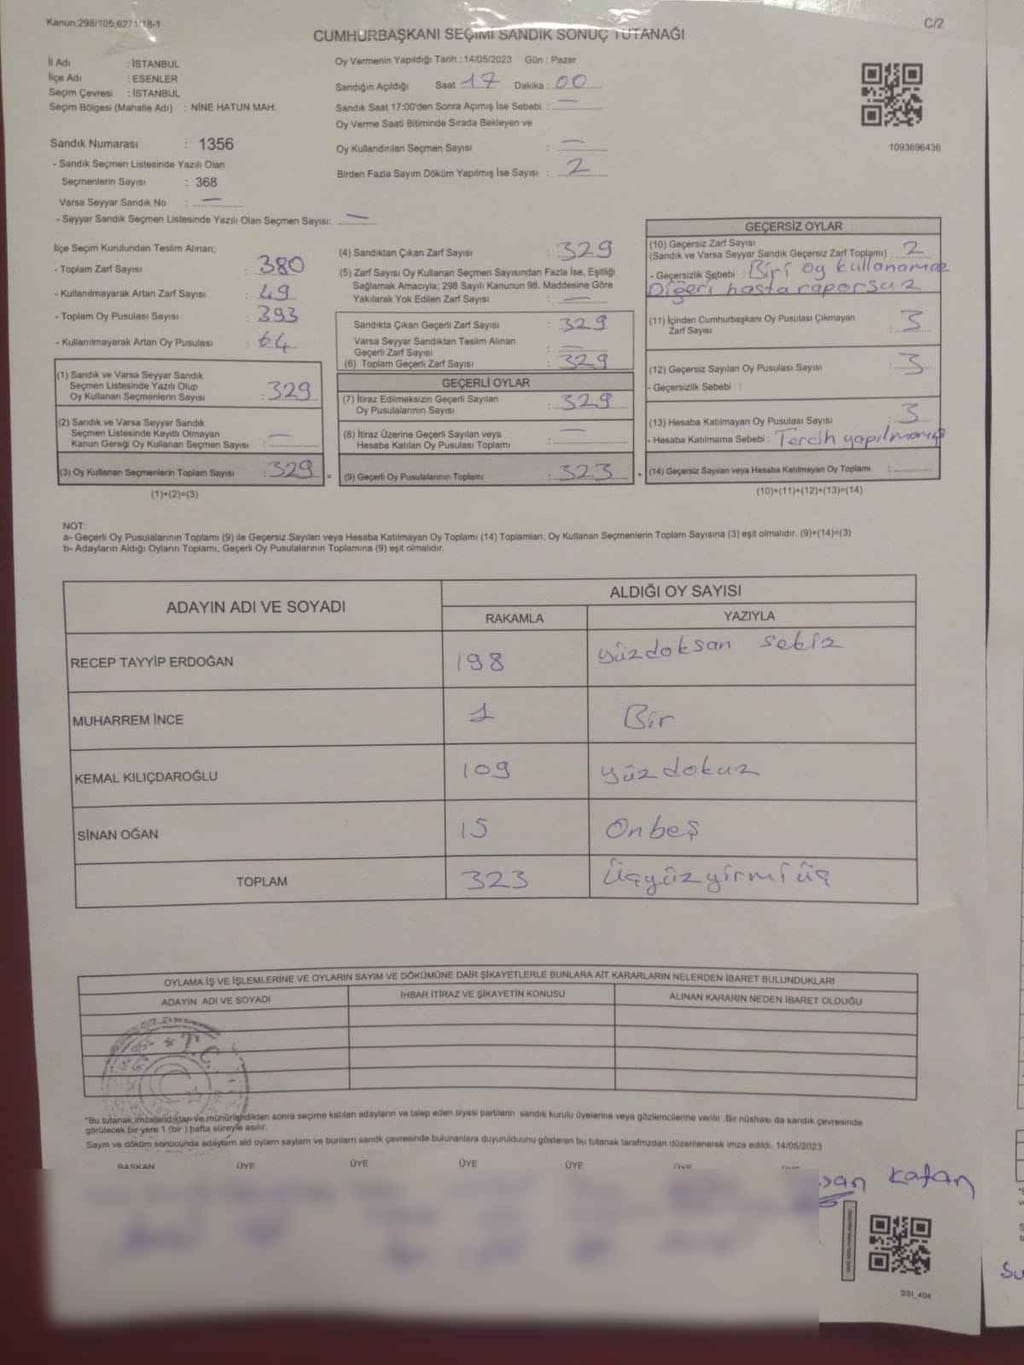 Kanun:298/105;6271/18-1
C/2
CUMHURBAŞKANI SEÇİMİ SANDIK SONUÇ TUTANAĞI
İl Adı : İSTANBUL
İlçe Adı : ESENLER
Seçim Çevresi : İSTANBUL
Seçim Bölgesi (Mahalle Adı) : NİNE HATUN MAH.
Sandık Numarası : 1356
- Sandık Seçmen Listesinde Yazılı Olan
Seçmenlerin Sayısı : 368
Varsa Seyyar Sandık No : —
- Seyyar Sandık Seçmen Listesinde Yazılı Olan Seçmen Sayısı: —
Oy Vermenin Yapıldığı Tarih : 14/05/2023 Gün : Pazar
Sandığın Açıldığı Saat 17 Dakika : 00
Sandık Saat 17:00'den Sonra Açımış İse Sebebi : —
Oy Verme Saati Bitiminde Sırada Bekleyen ve
Oy Kullandırılan Seçmen Sayısı : —
Birden Fazla Sayım Döküm Yapılmış İse Sayısı : 2
1093696436
İlçe Seçim Kurulundan Teslim Alınan;
- Toplam Zarf Sayısı : 380
- Kullanılmayarak Artan Zarf Sayısı : 49
- Toplam Oy Pusulası Sayısı : 393
- Kullanılmayarak Artan Oy Pusulası : 64
(1) Sandık ve Varsa Seyyar Sandık
Seçmen Listesinde Yazılı Olup
Oy Kullanan Seçmenlerin Sayısı : 329
(2) Sandık ve Varsa Seyyar Sandık
Seçmen Listesinde Kayıtlı Olmayan
Kanun Gereği Oy Kullanan Seçmen Sayısı : —
(3) Oy Kullanan Seçmenlerin Toplam Sayısı : 329
(1)+(2)=(3)
(4) Sandıktan Çıkan Zarf Sayısı : 329
(5) Zarf Sayısı Oy Kullanan Seçmen Sayısından Fazla İse, Eşitliği
Sağlamak Amacıyla; 298 Sayılı Kanunun 98. Maddesine Göre
Yakılarak Yok Edilen Zarf Sayısı : —
Sandıkta Çıkan Geçerli Zarf Sayısı : 329
Varsa Seyyar Sandıktan Teslim Alınan
Geçerli Zarf Sayısı : —
(6) Toplam Geçerli Zarf Sayısı : 329
GEÇERLİ OYLAR
(7) İtiraz Edilmeksizin Geçerli Sayılan
Oy Pusulalarının Sayısı : 329
(8) İtiraz Üzerine Geçerli Sayılan veya
Hesaba Katılan Oy Pusulası Toplamı : —
(9) Geçerli Oy Pusulalarının Toplamı : 323
GEÇERSİZ OYLAR
(10) Geçersiz Zarf Sayısı
(Sandık ve Varsa Seyyar Sandık Geçersiz Zarf Toplamı) : 2
- Geçersizlik Sebebi : Biri oy kullanamaz
Diğeri hasta raporsuz
(11) İçinden Cumhurbaşkanı Oy Pusulası Çıkmayan
Zarf Sayısı : 3
(12) Geçersiz Sayılan Oy Pusulası Sayısı : 3
- Geçersizlik Sebebi :
(13) Hesaba Katılmayan Oy Pusulası Sayısı : 3
- Hesaba Katılmama Sebebi : Tercih yapılmamış
(14) Geçersiz Sayılan veya Hesaba Katılmayan Oy Toplamı :
(10)+(11)+(12)+(13)=(14)
NOT:
a- Geçerli Oy Pusulalarının Toplamı (9) ile Geçersiz Sayılan veya Hesaba Katılmayan Oy Toplamı (14) Toplamları, Oy Kullanan Seçmenlerin Toplam Sayısına (3) eşit olmalıdır. (9)+(14)=(3)
b- Adayların Aldığı Oyların Toplamı, Geçerli Oy Pusulalarının Toplamına (9) eşit olmalıdır.
ADAYIN ADI VE SOYADI
ALDIĞI OY SAYISI
RAKAMLA YAZIYLA
RECEP TAYYİP ERDOĞAN 198 yüzdoksan sekiz
MUHARREM İNCE 1 Bir
KEMAL KILIÇDAROĞLU 109 yüz dokuz
SİNAN OĞAN 15 Onbeş
TOPLAM 323 Üçyüzyirmi üç
OYLAMA İŞ VE İŞLEMLERİNE VE OYLARIN SAYIM VE DÖKÜMÜNE DAİR ŞİKAYETLERLE BUNLARA AİT KARARLARIN NELERDEN İBARET BULUNDUKLARI
ADAYIN ADI VE SOYADI İHBAR İTİRAZ VE ŞİKAYETİN KONUSU ALINAN KARARIN NEDEN İBARET OLDUĞU
T.C.
*Bu tutanak imzalandıktan ve mühürlendikten sonra seçime katılan adayların ve talep eden siyasi partilerin sandık kurulu üyelerine veya gözlemcilerine verilir. Bir nüshası da sandık çevresinde
görülecek bir yere 1 (bir) hafta süreyle asılır.
Sayım ve döküm sonucunda adayların aldığı oyların sayılarını ve bunların sandık çevresinde bulunanlara duyurulduğunu gösteren bu tutanak tarafımızdan düzenlenerek imza edildi. 14/05/2023
BAŞKAN ÜYE ÜYE ÜYE ÜYE ÜYE